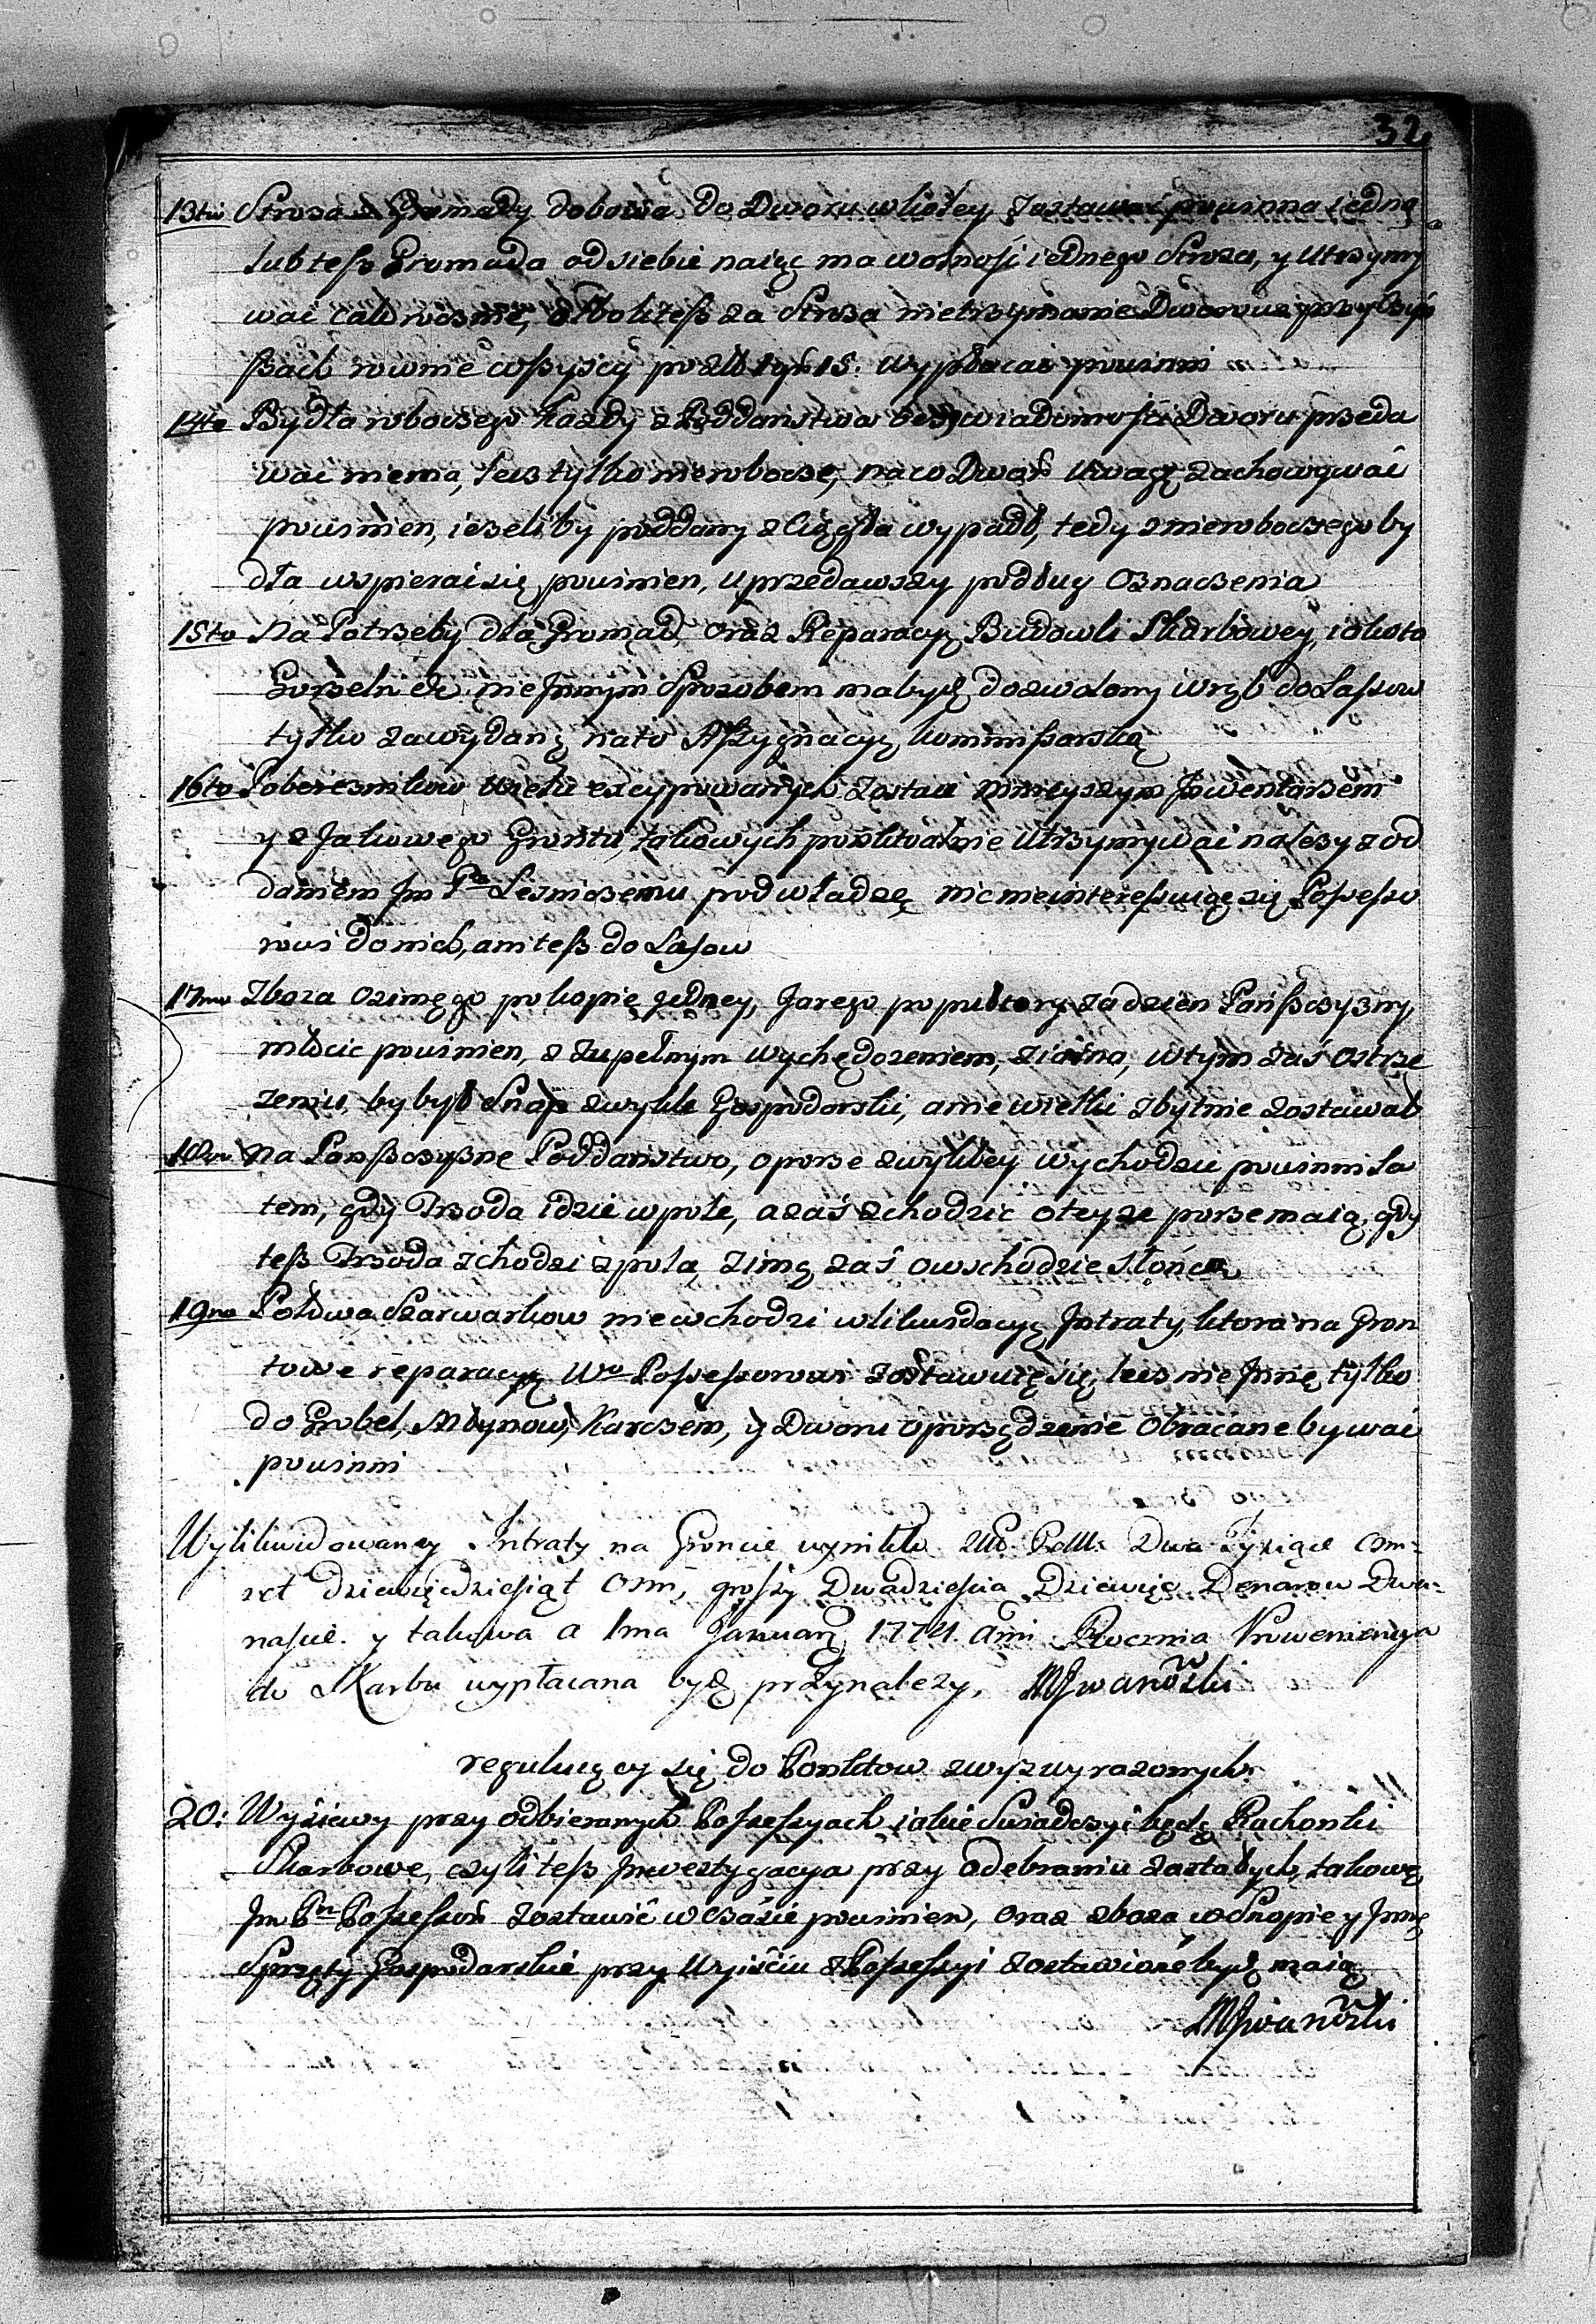 32
13tio Stroża z Gromady dobowa do Dworu w koley zostawać powinna iedna
lub tesz Gromada od siebie naiąć ma wolność iednego Stroża, y Utrzymy
wać całorocznie, albo litesz za Stroża nietrzymanie Dworowi przy Czyn
szach rownie wszyscy po zł 1 gr 15. wypłacać powinni
14to Bydła roboczego Każdy z Poddanstwa bez wiadomości Dworu przeda
wać niema, lecz tylko nierobocze, na co Dwor Uwagę zachowywać
powinien, ieżeliby poddany z Ciągła wypadł, tedy z nieroboczego by
dła wspierać się powinien, uprzedawszy podług Oznaczenia
15to Na Potrzeby dla Gromad, oraz Reparacyę Budowli Skarbowey, iako to
Gorzelni &c. nie Innym Sposobem ma bydź dozwolony Wrąb do Lassow
tylko za wydaną na to Assygnacyą kommissarską
16to Pobereznikow wielu excypowanych zostaie ninieyszym Inwentarzem
y z Jakowego Grontu, takowych ponktualnie Utrzymywać należy z od
daniem Jm Pa Lesniczemu pod władzę nic nieinteressuiąc się Possesso
rowi do nich, ani tesz do Lasow
17mo Zboża Ozimego po kopie jedney, Jarego po pułtory za dzien Panszczyzny,
młocic powinien, z zupełnym wychędożeniem, ziarna, w tym zaś Ostrze
żeniu, by był Snop zwykle Gospodarski, a nie wielki zbytnie zostawał
18vo Na Panszczyznę Poddaństwo, o porze zwykłey wychodzić powinni La
tem, gdy Trzoda idzie w pole, a zaś schodzić o teyże porze maią, gdy
tesz Trzoda schodzi z pola, zimą zaś o wschodzie słońca
19no Połowa Szarwarkow nie wchodzi w likwidacyę Intraty, ktora na Gron
towe reparacyę Wo Possessorowi zostawuię się, lecz nie Jnnę tylko
do Grobel, Młynow, Karczem, y Dworu oporządzenie Obracane bywać
powinni
Wylikwidowaney Intraty na Groncie wynikło Zł. Poll: Dwa Tysiące Osm=
set dziewięćdziesiąt Osm, groszy Dwadzieścia Dziewięć Denarow Dwa=
naście. y takowa a 1ma Januarÿ 1774. Ani Roczna Proweniencya
do Skarbu wypłacana bydź przynależy. MJwanowski
reguluiący się do Ponktow zwysz wyrażonych.
20: Wysiewy przy odbieranych Possessyach iakie Swiadczyć będą Rachonki
Skarbowe, czyli tesz Jnwestygacya przy Odebraniu zastałych, takowe
Jm Pan Possessor zostawić w Czasie powinien, oraz zboża w Snopie y Jnne
Sprzęty Gospodarskie przy Wyjściu z Possessyi zostawione bydź maią
MJwanowski